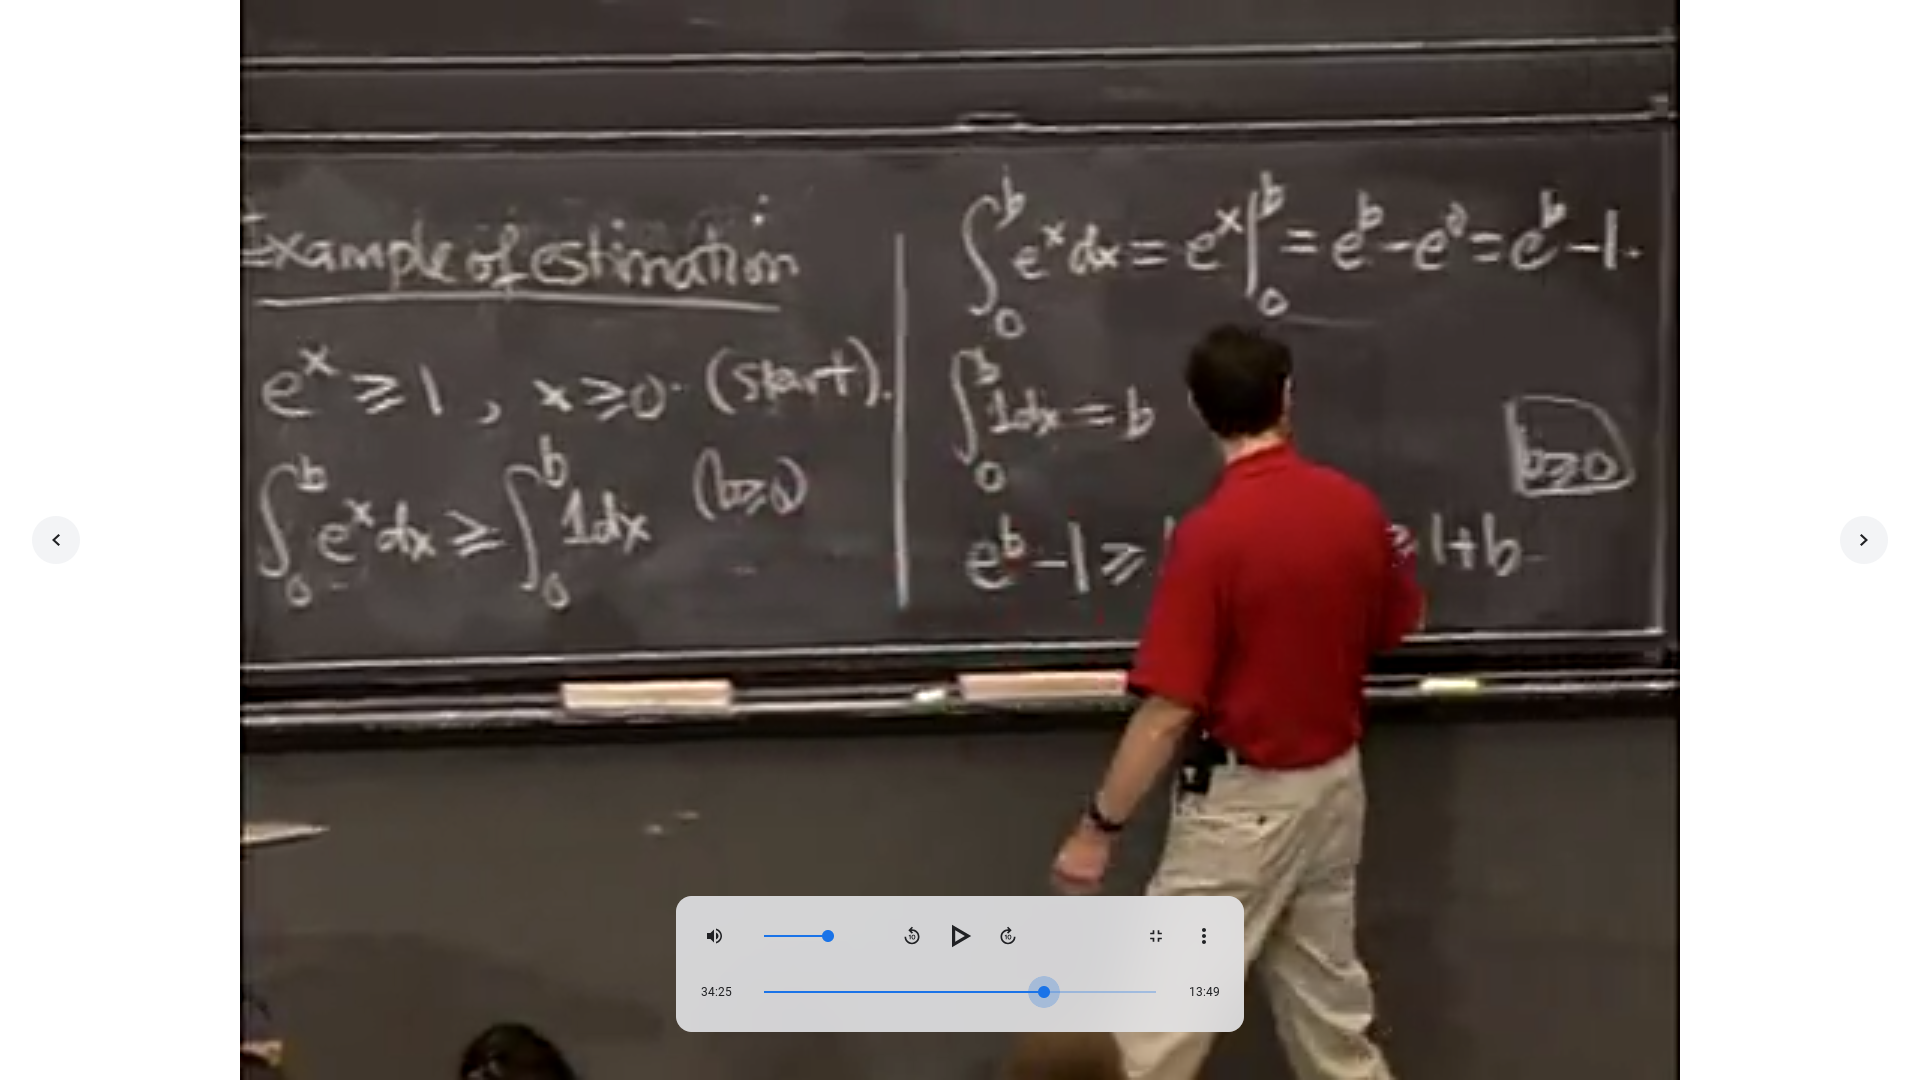 Example of estimation
e^x ≥ 1 , x ≥ 0. (start).
∫_0^b e^x dx ≥ ∫_0^b 1 dx (b ≥ 0)
∫_0^b e^x dx = e^x |_0^b = e^b - e^0 = e^b - 1.
∫_0^b 1 dx = b
b ≥ 0
e^b - 1 ≥
≥ 1 + b
10
10
34:25
13:49